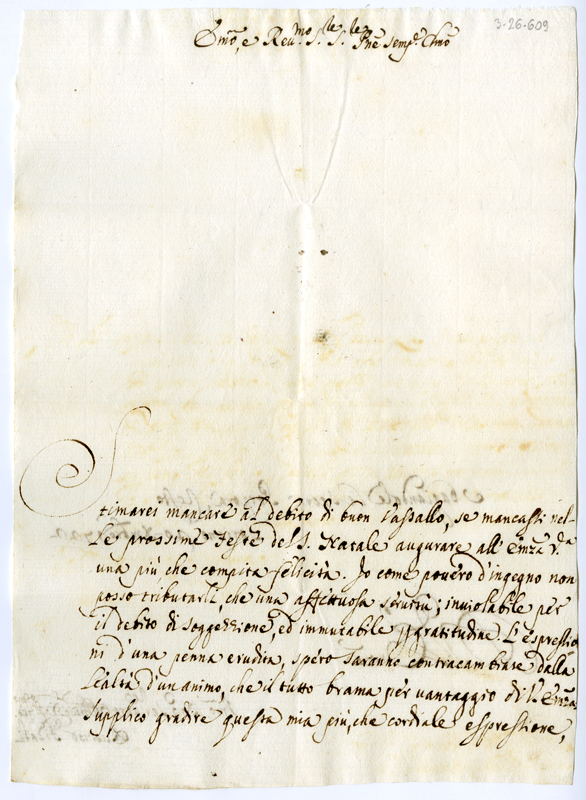 3-26-609
Em̃o, e Reu.mo S.le S.le Pñe Semp.e Clmo
Stimarei mancare al debito di buon Vassallo, se mancassi nel-
le prossime Feste del S. Natale augurare all' Emz̃a V.ra
una più, che compita felicità. Io come povero d'ingegno non
posso tributarli, che una affettuosa seruitù; inviolabile per
il debito di soggezzione, ed immutabile p gratitudine. L'espressio
ni d'una penna erudita, spero saranno contracambiate dalla
lealtà d'un animo, che il tutto brama per vantaggio di V. Emz̃a
supplico gradire questa mia più, che cordiale espressione,